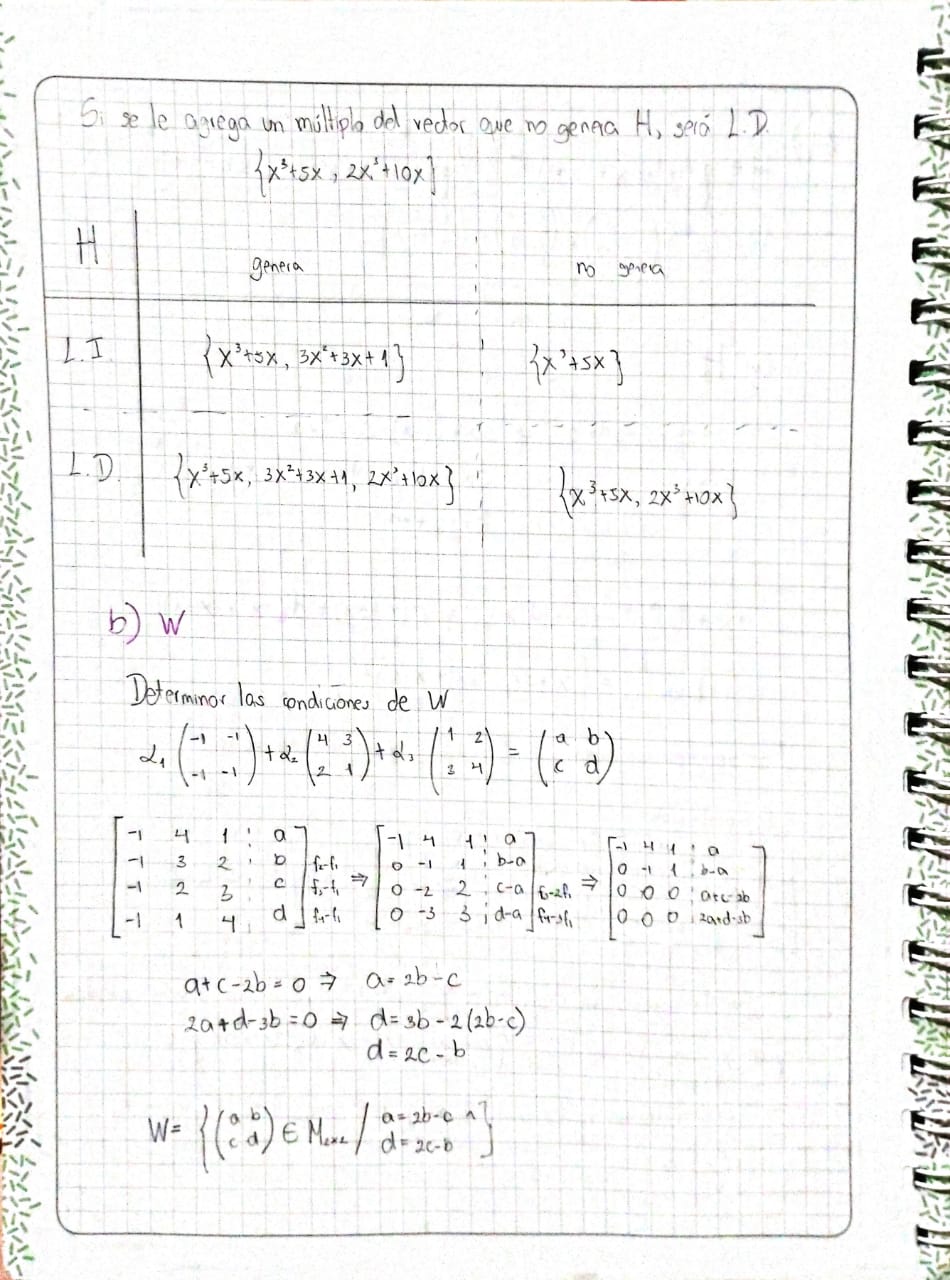 Si se le agrega un múltiplo del vector que no genera H, será L.D.
{x³+5x, 2x³+10x}
H genera no genera
L.I. {x³+5x, 3x²+3x+1} {x³+5x}
L.D. {x³+5x, 3x²+3x+1, 2x³+10x} {x³+5x, 2x³+10x}
b) W
Determinar las condiciones de W
α₁ (-1 -1; -1 -1) + α₂ (4 3; 2 1) + α₃ (1 2; 3 4) = (a b; c d)
[-1 4 1 ¦ a] [-1 4 1 ¦ a] [-1 4 1 ¦ a]
[-1 3 2 ¦ b] f₂-f₁ [0 -1 1 ¦ b-a] [0 -1 1 ¦ b-a]
[-1 2 3 ¦ c] f₃-f₁ ⇒ [0 -2 2 ¦ c-a] f₃-2f₁ ⇒ [0 0 0 ¦ a+c-2b]
[-1 1 4 ¦ d] f₄-f₁ [0 -3 3 ¦ d-a] f₄-3f₁ [0 0 0 ¦ 2a+d-3b]
a+c-2b=0 ⇒ a=2b-c
2a+d-3b=0 ⇒ d=3b-2(2b-c)
d=2c-b
W= {(a b; c d) ∈ M₂ₓ₂ / a=2b-c ∧ d=2c-b}